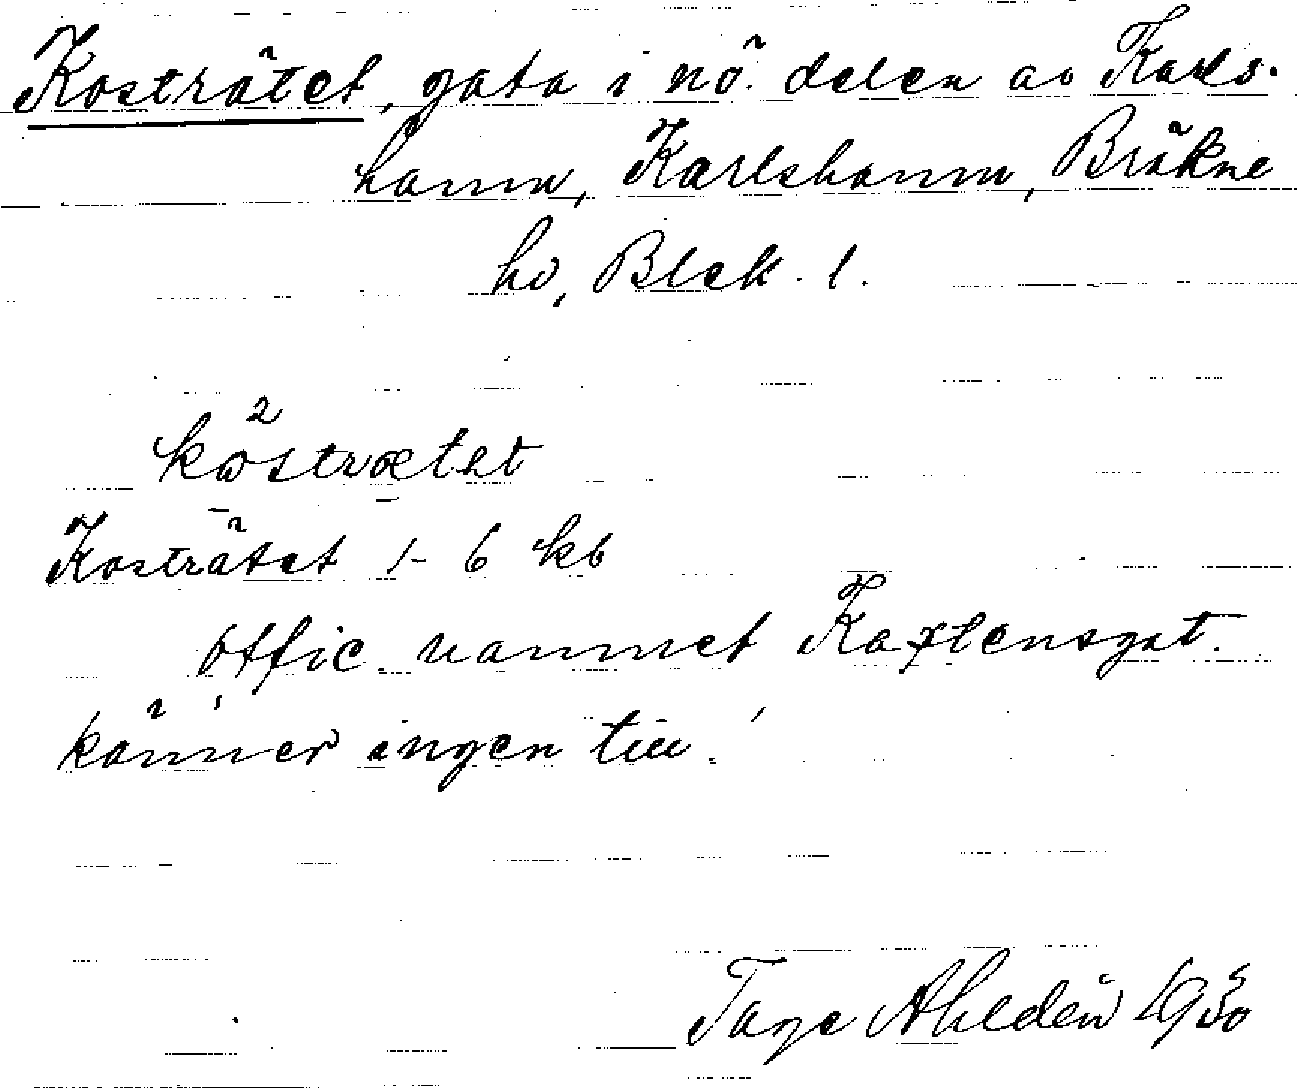 Kosträtet, gata i nö. delen av Karls-
hamn, Karlshamn, Bräkne
hd, Blek. l.
Kosträtet 1-6 kb
offic. namnet Kaptensgat.
känner ingen till!
Tage Ahldén 1930